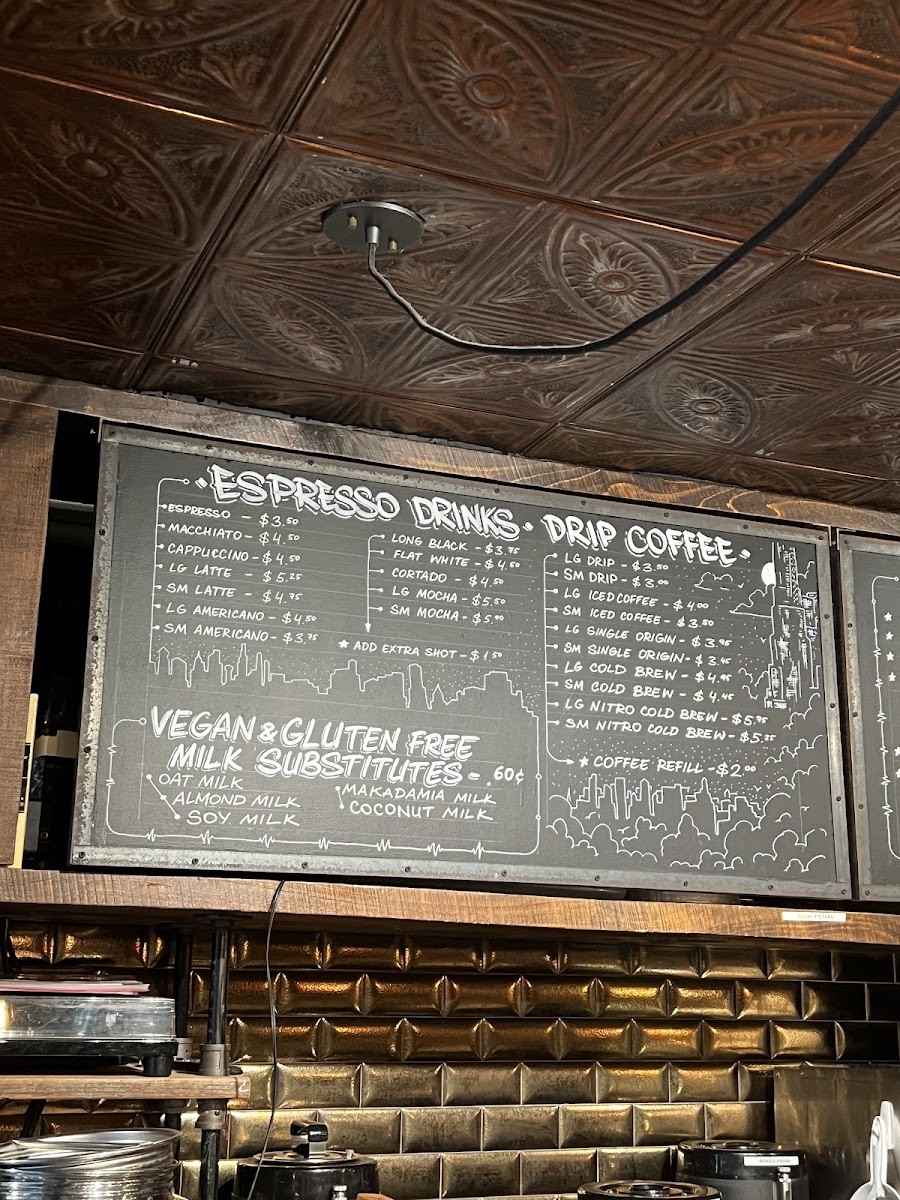 ESPRESSO DRINKS
ESPRESSO - $3.50
MACCHIATO - $4.50
CAPPUCCINO - $4.50
LG LATTE - $5.25
SM LATTE - $4.75
LG AMERICANO - $4.50
SM AMERICANO - $3.75
LONG BLACK - $3.75
FLAT WHITE - $4.50
CORTADO - $4.50
LG MOCHA - $5.50
SM MOCHA - $5.00
★ ADD EXTRA SHOT - $1.50
VEGAN & GLUTEN FREE
MILK SUBSTITUTES - .60¢
OAT MILK
ALMOND MILK
SOY MILK
MAKADAMIA MILK
COCONUT MILK
DRIP COFFEE
LG DRIP - $3.50
SM DRIP - $3.00
LG ICED COFFEE - $4.00
SM ICED COFFEE - $3.50
LG SINGLE ORIGIN - $3.95
SM SINGLE ORIGIN - $3.45
LG COLD BREW - $4.95
SM COLD BREW - $4.45
LG NITRO COLD BREW - $5.75
SM NITRO COLD BREW - $5.25
★ COFFEE REFILL - $2.00